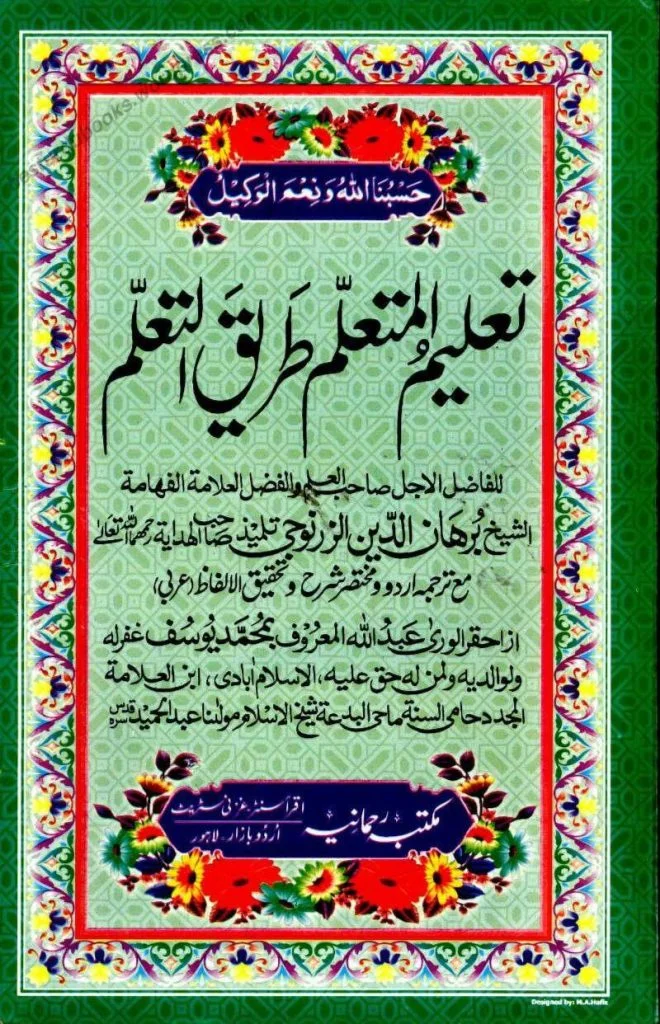 حَسْبُنَا اللهُ وَنِعْمَ الْوَكِيْلُ
تعلیمُ المتعلّم طَرِیقَ التعلّم
للفاضل الاجل صاحب العلم والفضل العلامة الفهامة
الشیخ بُرهَان الدّین الزرنوجی تلمیذ صاحب الهدایة رحمهما الله تعالیٰ
مع ترجمہ اردو و مختصر شرح و تحقیق الالفاظ (عربی)
از احقر الوریٰ عَبدُ اللّٰه المعروف بمُحمّد یُوسُف غفرله
ولوالدیه ولمن له حق علیه، الاسلام اٰبادی، ابن العلامة
المجدد حامی السنة ماحی البدعة شیخ الاسلام مولٰنا عبد الحمید قدس سره
مکتبہ رحمانیہ
اقرأ سنٹر غزنی سٹریٹ
اُردُو بازار۔ لاہور
Designed by: M.A.Hafiz